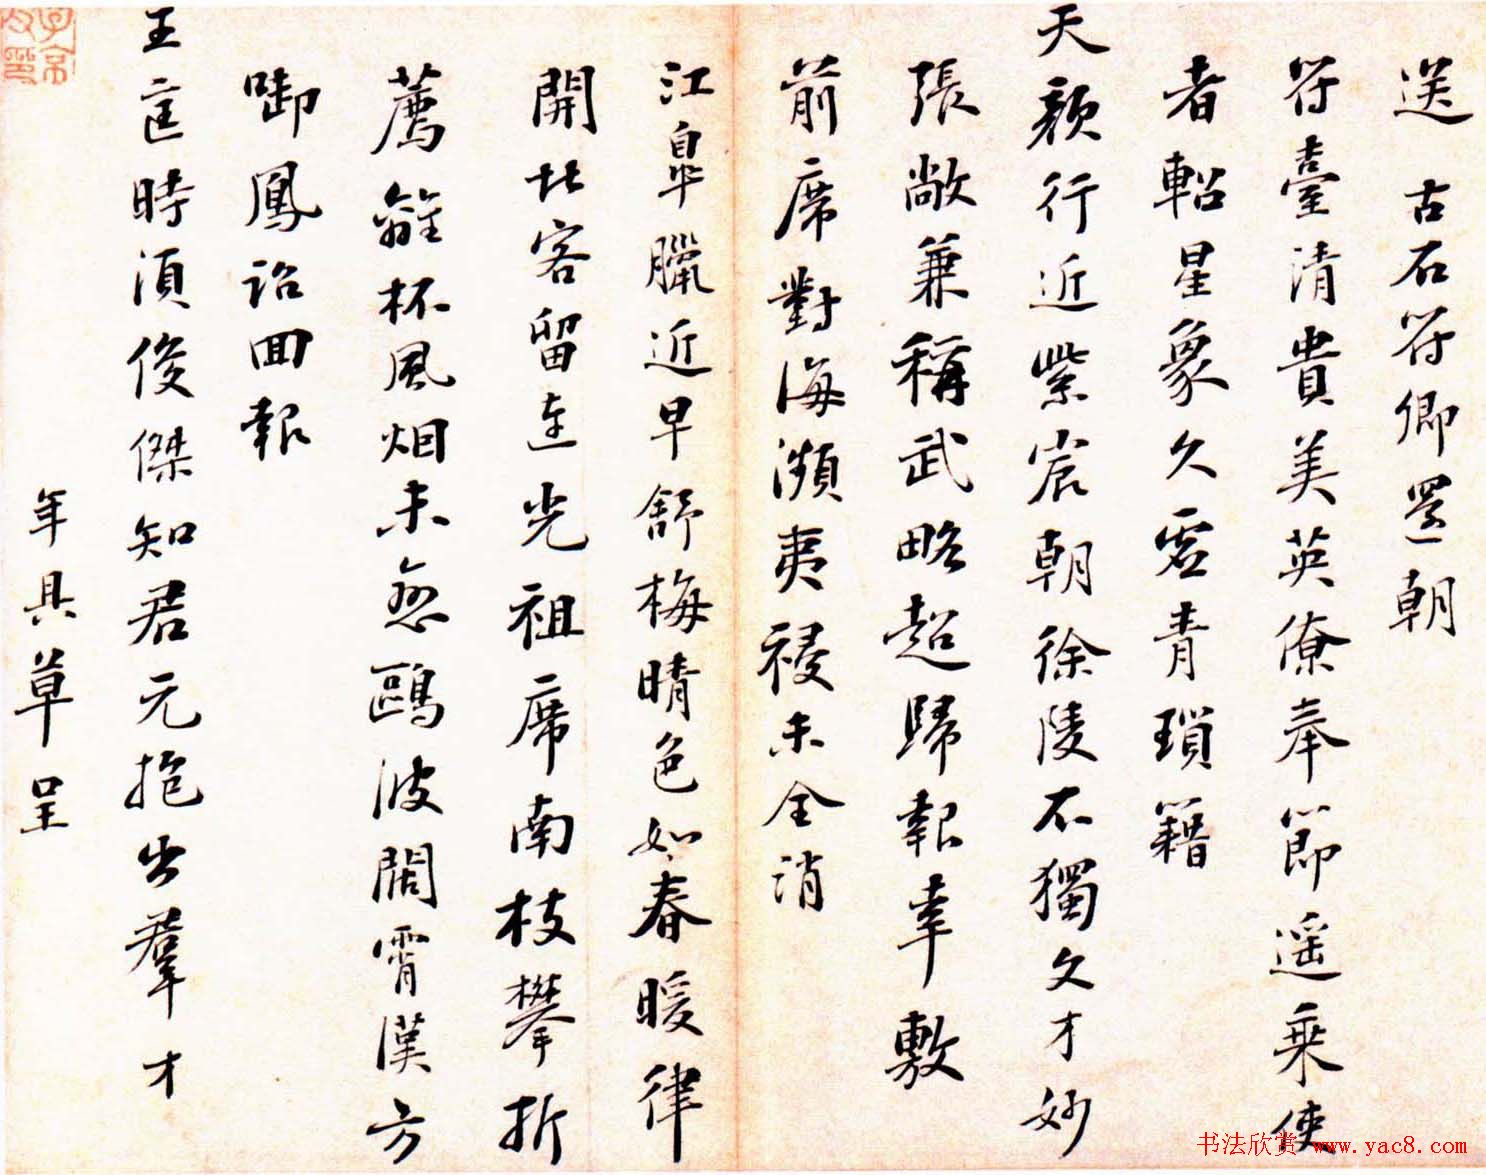 送古石符卿還朝
符臺清貴美英僚奉節遥乘使
者軺星象久虚青瑣籍
天顏行近紫宸朝徐陵不獨文才妙
張敞兼稱武略超歸報幸敷
前席對海瀕夷祲未全消
江皐臘近早舒梅晴色如春暖律
開北客留連光祖席南枝攀折
薦離杯風烟未愁鷗波闊霄漢方
啣鳳詔回報
王良時須俊傑知君元抱出羣才
年具草呈
书法欣赏 www.yac8.com